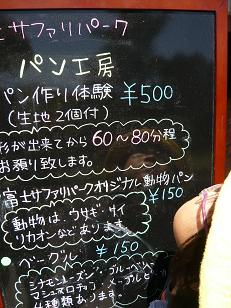 士サファリパーク
パン工房
パン作り体験 ¥500
(生地2個付)
形が出来てから60〜80分程
お願り致します。
富士サファリパークオリジナル動物パン
¥150
動物は、ウサギ・サイ
ライオンなどあります。
ベーグル ¥150
シナモンレーズン・ブルーベリー
種類あります。